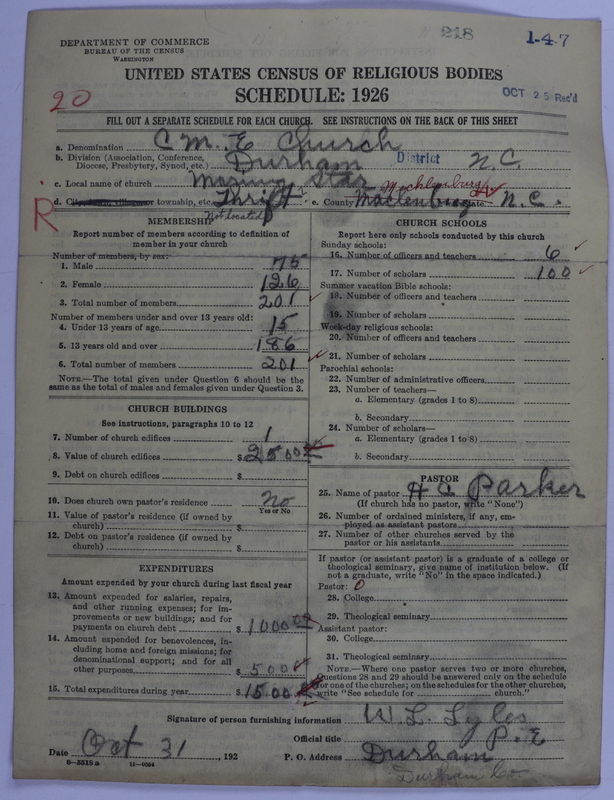 218
1-4-7
DEPARTMENT OF COMMERCE
BUREAU OF THE CENSUS
WASHINGTON
UNITED STATES CENSUS OF RELIGIOUS BODIES
SCHEDULE: 1926
OCT 25 Rec'd
20
FILL OUT A SEPARATE SCHEDULE FOR EACH CHURCH. SEE INSTRUCTIONS ON THE BACK OF THIS SHEET
a. Denomination C M. E Church
b. Division (Association, Conference, Diocese, Presbytery, Synod, etc.) Durham District N.C.
c. Local name of church Morning Star
Mecklenburg
d. township, etc. Thrift e. County Macklenburg State N.C.
not located
R
MEMBERSHIP
Report number of members according to definition of member in your church
Number of members, by sex:
1. Male 75
2. Female 126
3. Total number of members 201
Number of members under and over 13 years old:
4. Under 13 years of age 15
5. 13 years old and over 186
6. Total number of members 201
NOTE.—The total given under Question 6 should be the same as the total of males and females given under Question 3.
CHURCH BUILDINGS
See instructions, paragraphs 10 to 12
7. Number of church edifices 1
8. Value of church edifices $ 2500
9. Debt on church edifices $
10. Does church own pastor's residence? No
Yes or No
11. Value of pastor's residence (if owned by church) $
12. Debt on pastor's residence (if owned by church) $
EXPENDITURES
Amount expended by your church during last fiscal year
13. Amount expended for salaries, repairs, and other running expenses; for improvements or new buildings; and for payments on church debt $ 1000
14. Amount expended for benevolences, including home and foreign missions; for denominational support; and for all other purposes $ 500
15. Total expenditures during year $ 1500
CHURCH SCHOOLS
Report here only schools conducted by this church
Sunday schools:
16. Number of officers and teachers 6
17. Number of scholars 100
Summer vacation Bible schools:
18. Number of officers and teachers
19. Number of scholars
Week-day religious schools:
20. Number of officers and teachers
21. Number of scholars
Parochial schools:
22. Number of administrative officers
23. Number of teachers—
a. Elementary (grades 1 to 8)
b. Secondary
24. Number of scholars—
a. Elementary (grades 1 to 8)
b. Secondary
PASTOR
25. Name of pastor H C Parker
(If church has no pastor, write "None")
26. Number of ordained ministers, if any, employed as assistant pastors
27. Number of other churches served by the pastor or his assistants
If pastor (or assistant pastor) is a graduate of a college or theological seminary, give name of institution below. (If not a graduate, write "No" in the space indicated.)
Pastor: 0
28. College
29. Theological seminary
Assistant pastor:
30. College
31. Theological seminary
NOTE.—Where one pastor serves two or more churches, Questions 28 and 29 should be answered only on the schedule for one of the churches; on the schedules for the other churches, write "See schedule for church."
Signature of person furnishing information W. L. Lyles
Official title P. E
Date Oct 31, 192 P. O. Address Durham
8-5519a 11-9064
Durham Co.